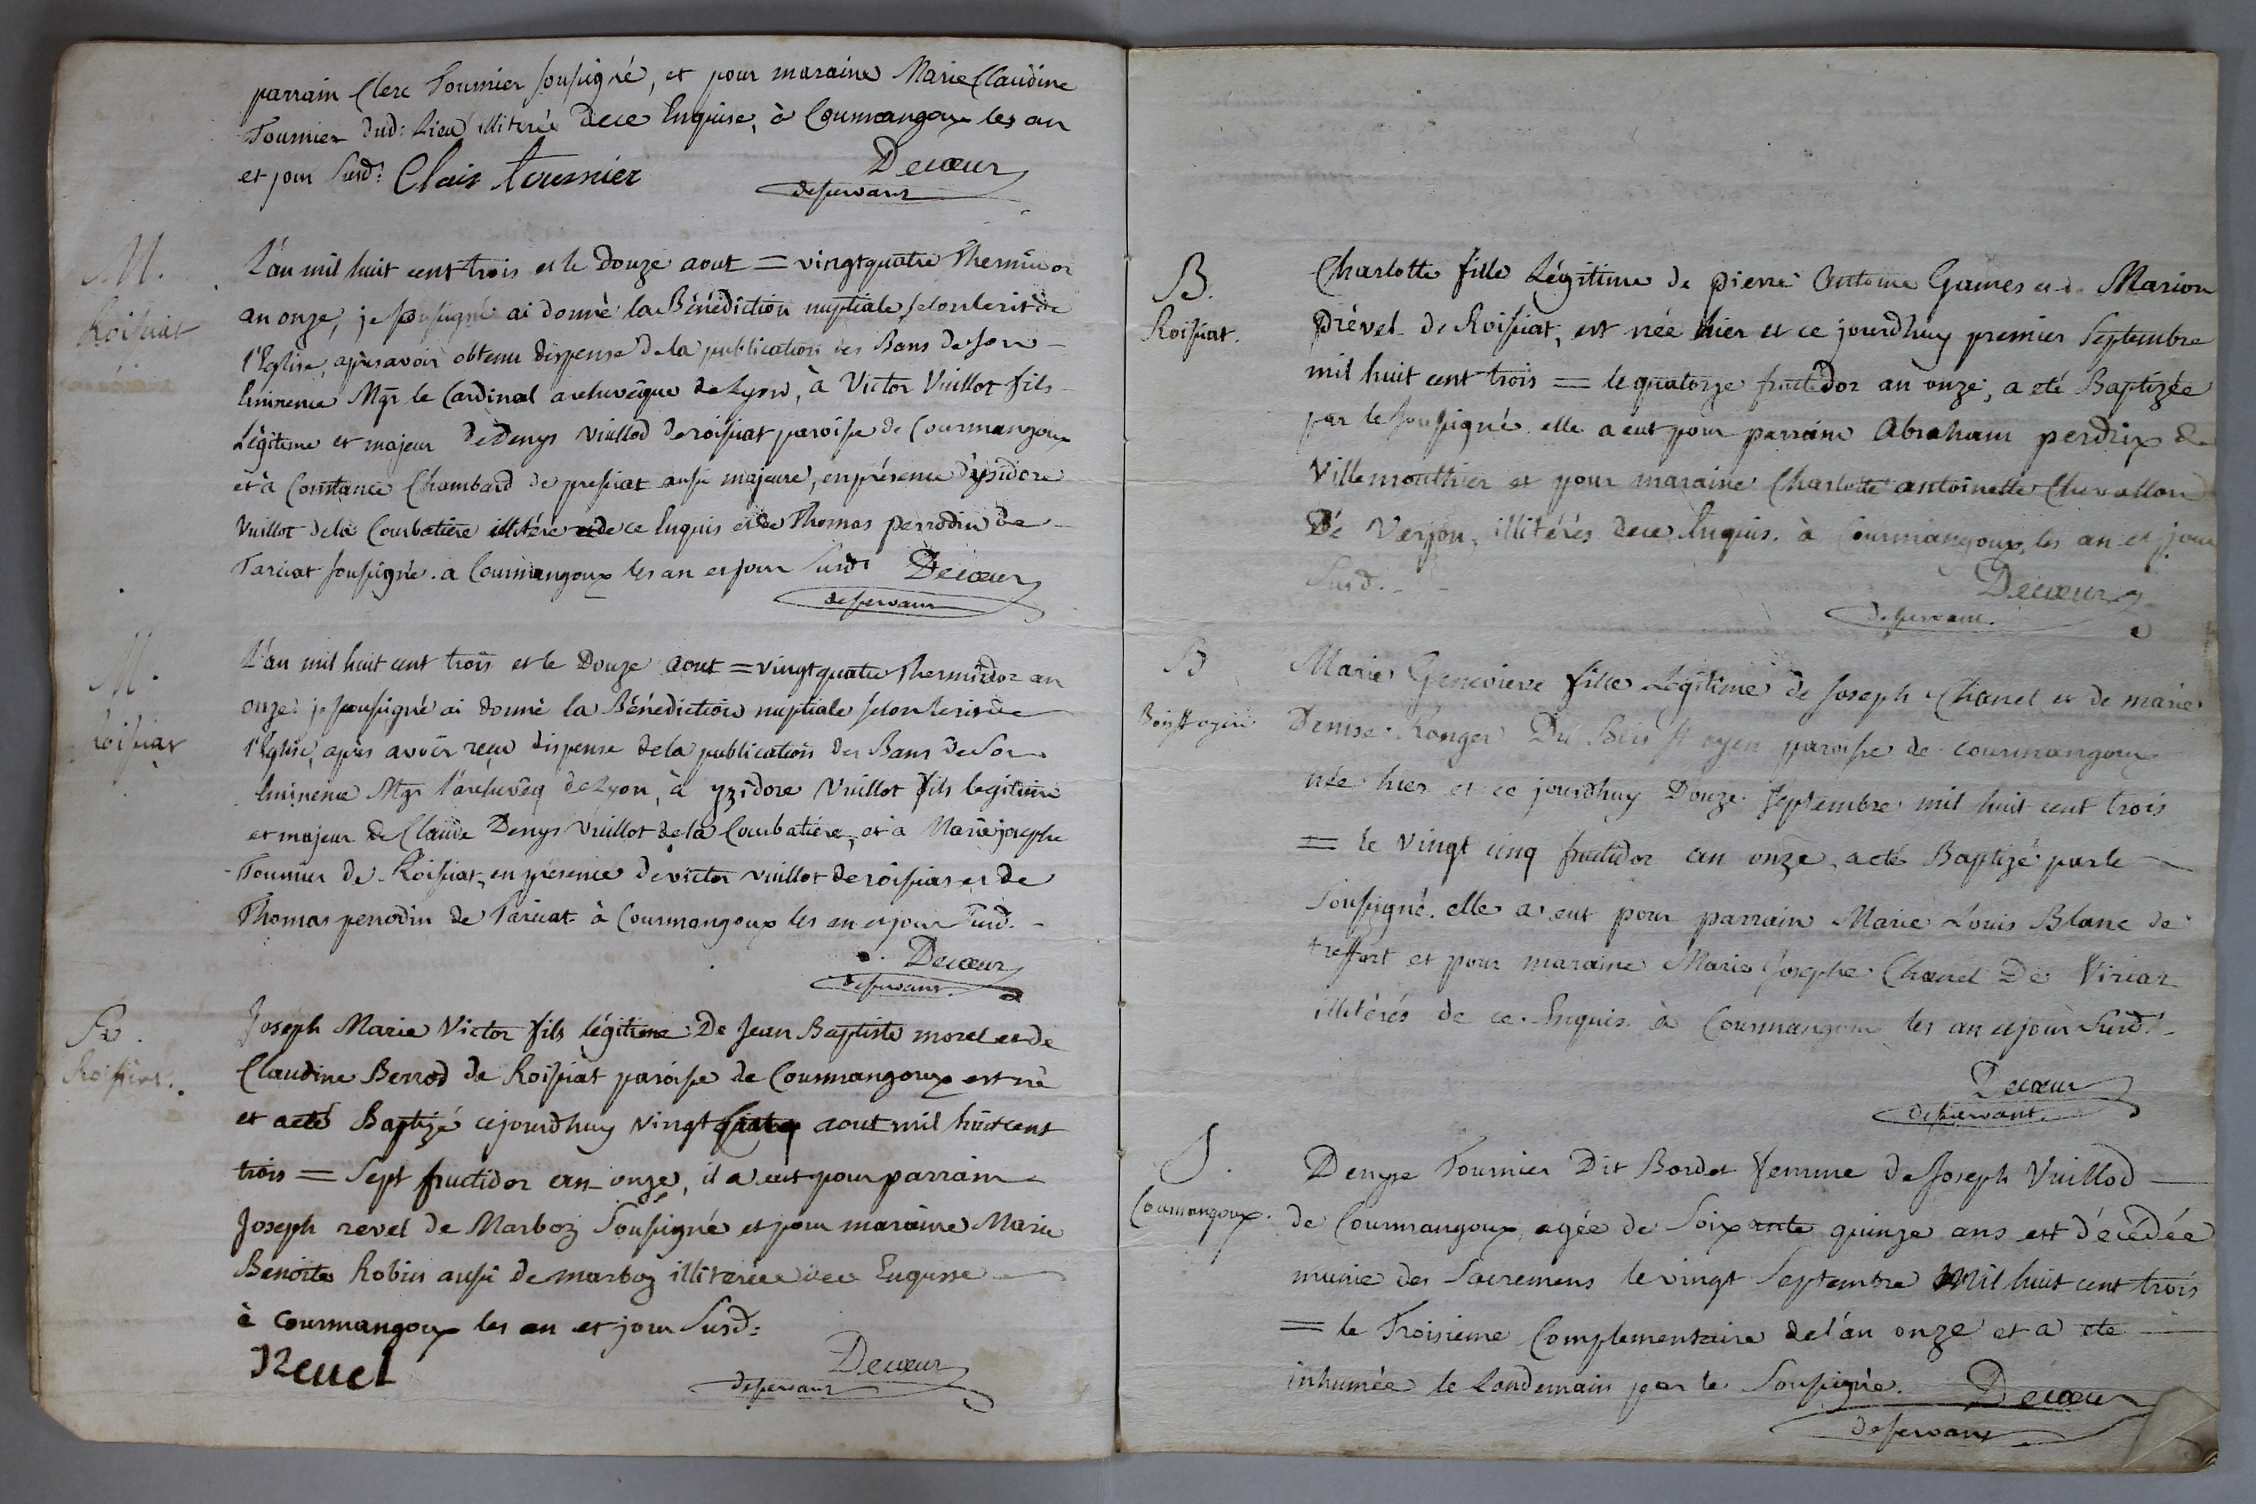 parrain Clerc Tournier soussigné, et pour maraine Marie Claudine
Tournier dud: Lieu illiterée dece Enquise, à Courmangoux les an
et jour Susd: Clair tournier Decœur
desservant
M.
Roissiat
L'an mil huit cent trois et le Douze aout = vingtquatre Thermidor
an onze, je soussigné ai donné la Bénédiction nuptiale selon le rit de
l'Eglise, après avoir obtenu dispense de la publication des Bans de son
Eminence Mgr le Cardinal archevêque de Lyon, à Victor Vuillot fils
Légitime et majeur de Denys Vuillod de roissiat paroisse de Courmangoux
et à Constance Chambard de pressiat aussi majeure, en présence d'ysidore
Vuillot dela Courbatière illitéré de ce Enquis et de Thomas perrodin de
Tarciat soussigné. a Courmangoux les an et jour Susd: Decœur
desservant
M.
roissiat
L'an mil huit cent trois et le Douze aout = vingtquatre Thermidor an
onze: je soussigné ai donné la Bénédiction nuptiale selon le rit de
l'Eglise, après avoir reçu dispense dela publication des Bans de Son
Eminence Mgr l'archevêq de Lyon, à yzidore Vuillot fils legitime
et majeur de Claude Denys Vuillot de la Courbatière, et à Marie josephe
Tournier de Roissiat, en présence de victor vuillot de roissiat et de
Thomas perrodin de Tarciat. à Courmangoux les an et jour Susd.
Decœur
desservant
B.
Roissiat.
Joseph Marie Victor fils légitime De Jean Baptiste morel et de
Claudine Berrod de Roissiat paroisse de Courmangoux est né
et a eté Baptizé cejourdhuy vingt aout mil huit cent
trois = Sept fructidor an onze, il a eut pour parrain
Joseph revel de Marboz Soussigné et pour maraine Marie
Benoite Robin aussi de marboz illiterée dece Enquise
à Courmangoux les an et jour Susd:
Revel Decœur
desservant
B.
Roissiat.
Charlotte fille Légitime de pierre Antoine Gaines et de Marion
Prével de Roissiat, est née hier et ce jourdhuy premier Septembre
mil huit cent trois = le quatorze fructidor an onze, a eté Baptizée
par le soussigné. elle a eut pour parrain Abraham perdrix de
Villemouthier et pour maraine Charlotte antoinette Chevallon
De Verjon, illitérés dece Enquis. à Courmangoux, les an et jour
Susd. Decœur
desservant.
B
Bois st ogen
Marie Genevieve fille Légitime de Joseph Chanel et de marie
Denise Ronger Du Bois st oyen paroisse de courmangoux
née hier et ce jourdhuy Douze Septembre mil huit cent trois
= le vingt cinq fructidor an onze, a eté Baptizé par le
Soussigné. elle a eut pour parrain Marie Louis Blanc de
treffort et pour maraine Marie Josephe Chanel De Viriat
illitérés de ce Enquis. à Courmangoux les an et jour Susd.
Decœur
desservant.
S.
Courmangoux.
Denyse Tournier Dit Bordet femme de Joseph Vuillod
de Courmangoux, agée de Soixante quinze ans est décédée
munie des Sacremens le vingt Septembre Mil huit cent trois
= le Troisieme Complementaire de l'an onze et a ete
inhumée le Landemain par le Soussigné. Decœur
desservant